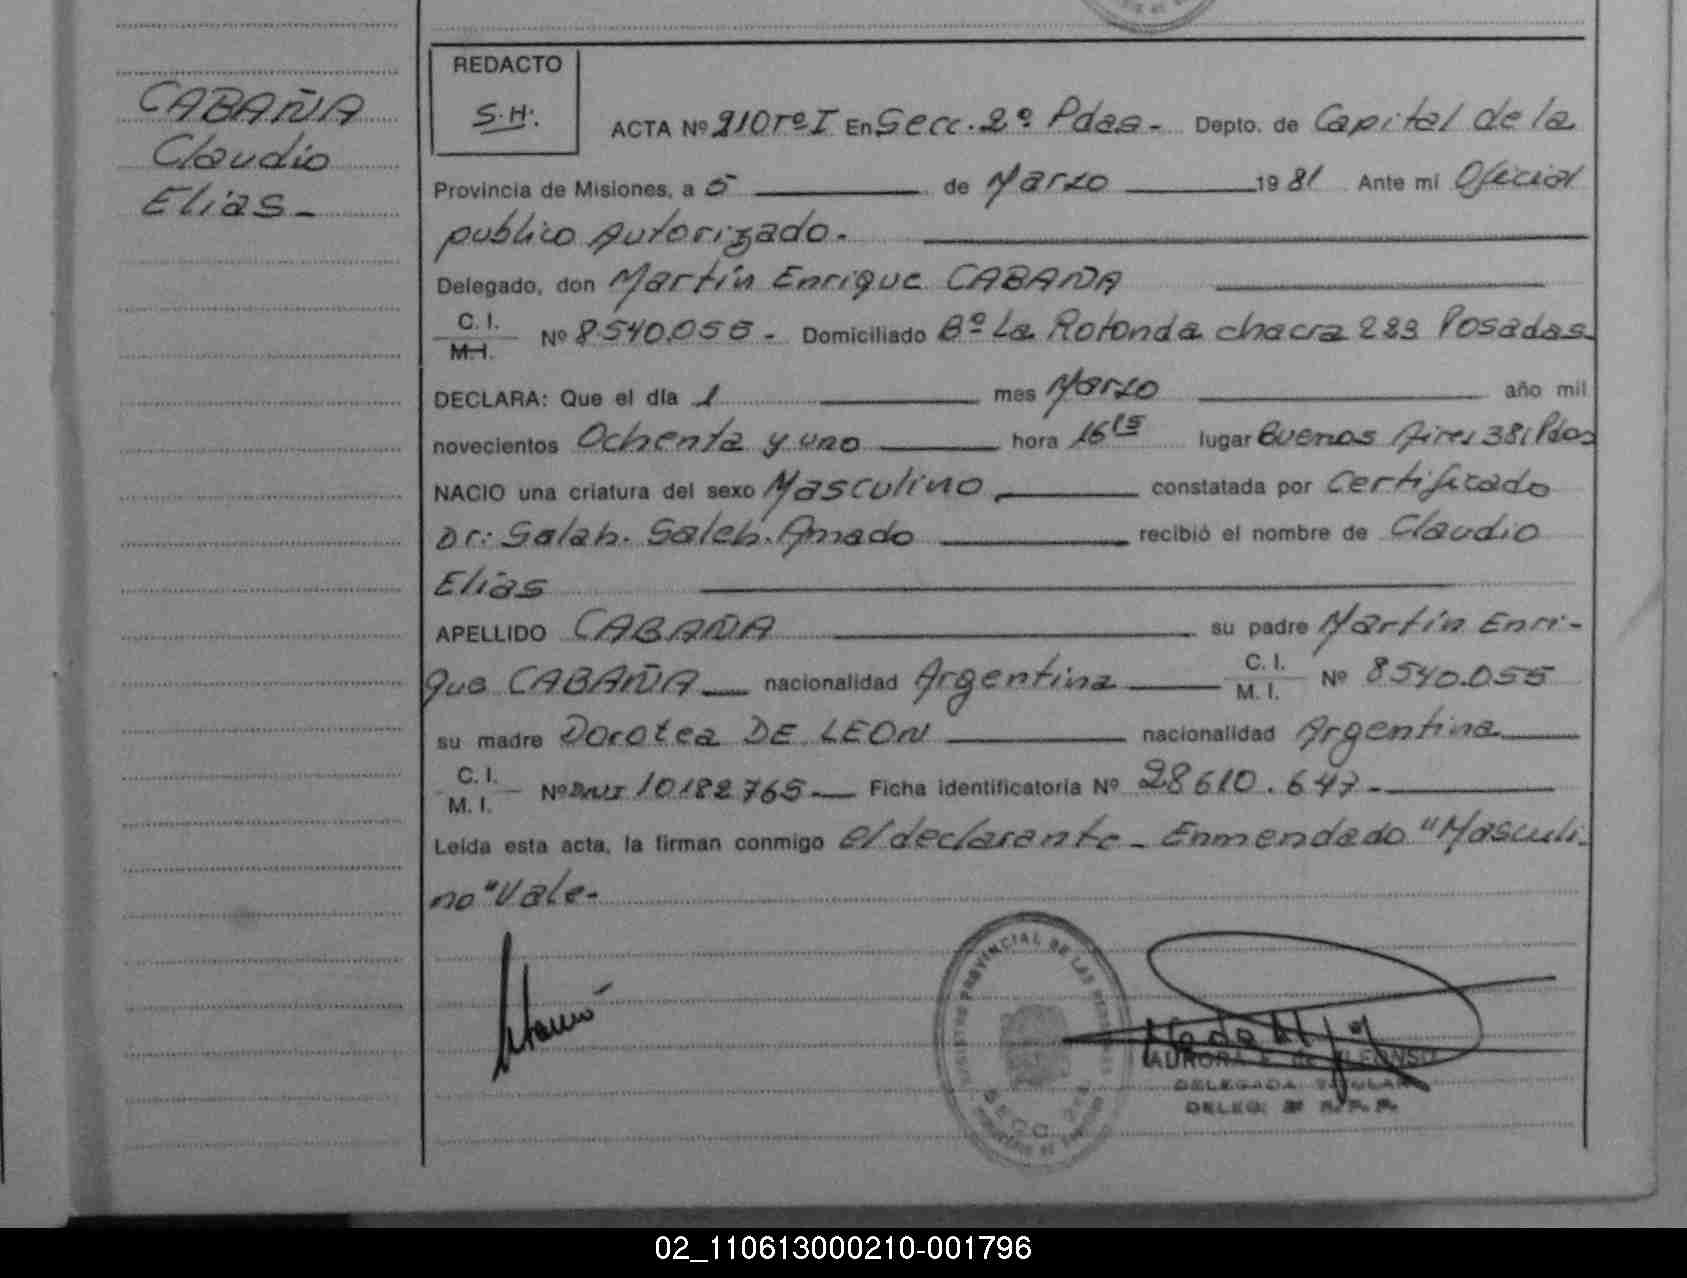 CABAÑA
Claudio
Elias -
REDACTO
S.H.
ACTA Nº 210 Tº I En Secc. 2º Pdas - Depto. de Capital de la
Provincia de Misiones, a 5 de Marzo 1981 Ante mi Oficial
publico Autorizado.
Delegado, don Martín Enrique CABAÑA
C. I.
M. I. Nº 8540.055 - Domiciliado Bº La Rotonda chacra 233 Posadas.
DECLARA: Que el día 1 mes Marzo año mil
novecientos Ochenta y uno hora 16 15 lugar Buenos Aires 381 Pdas
NACIO una criatura del sexo Masculino, constatada por Certificado
Dr: Salah. Saleh. Amado recibió el nombre de Claudio
Elias
APELLIDO CABAÑA su padre Martín Enri-
que CABAÑA nacionalidad Argentina C. I.
M. I. Nº 8540.055
su madre Dorotea DE LEON nacionalidad Argentina
C. I.
M. I. Nº DNI 10182765 - Ficha identificatoria Nº 28610.647 -
Leída esta acta, la firman conmigo el declarante - Enmendado "Masculi-
no" Vale -
PROVINCIAL DE LAS
SECC. 2da
AURORA E. de ALFONSO
DELEGADA TITULAR
DELEG.
02_110613000210-001796